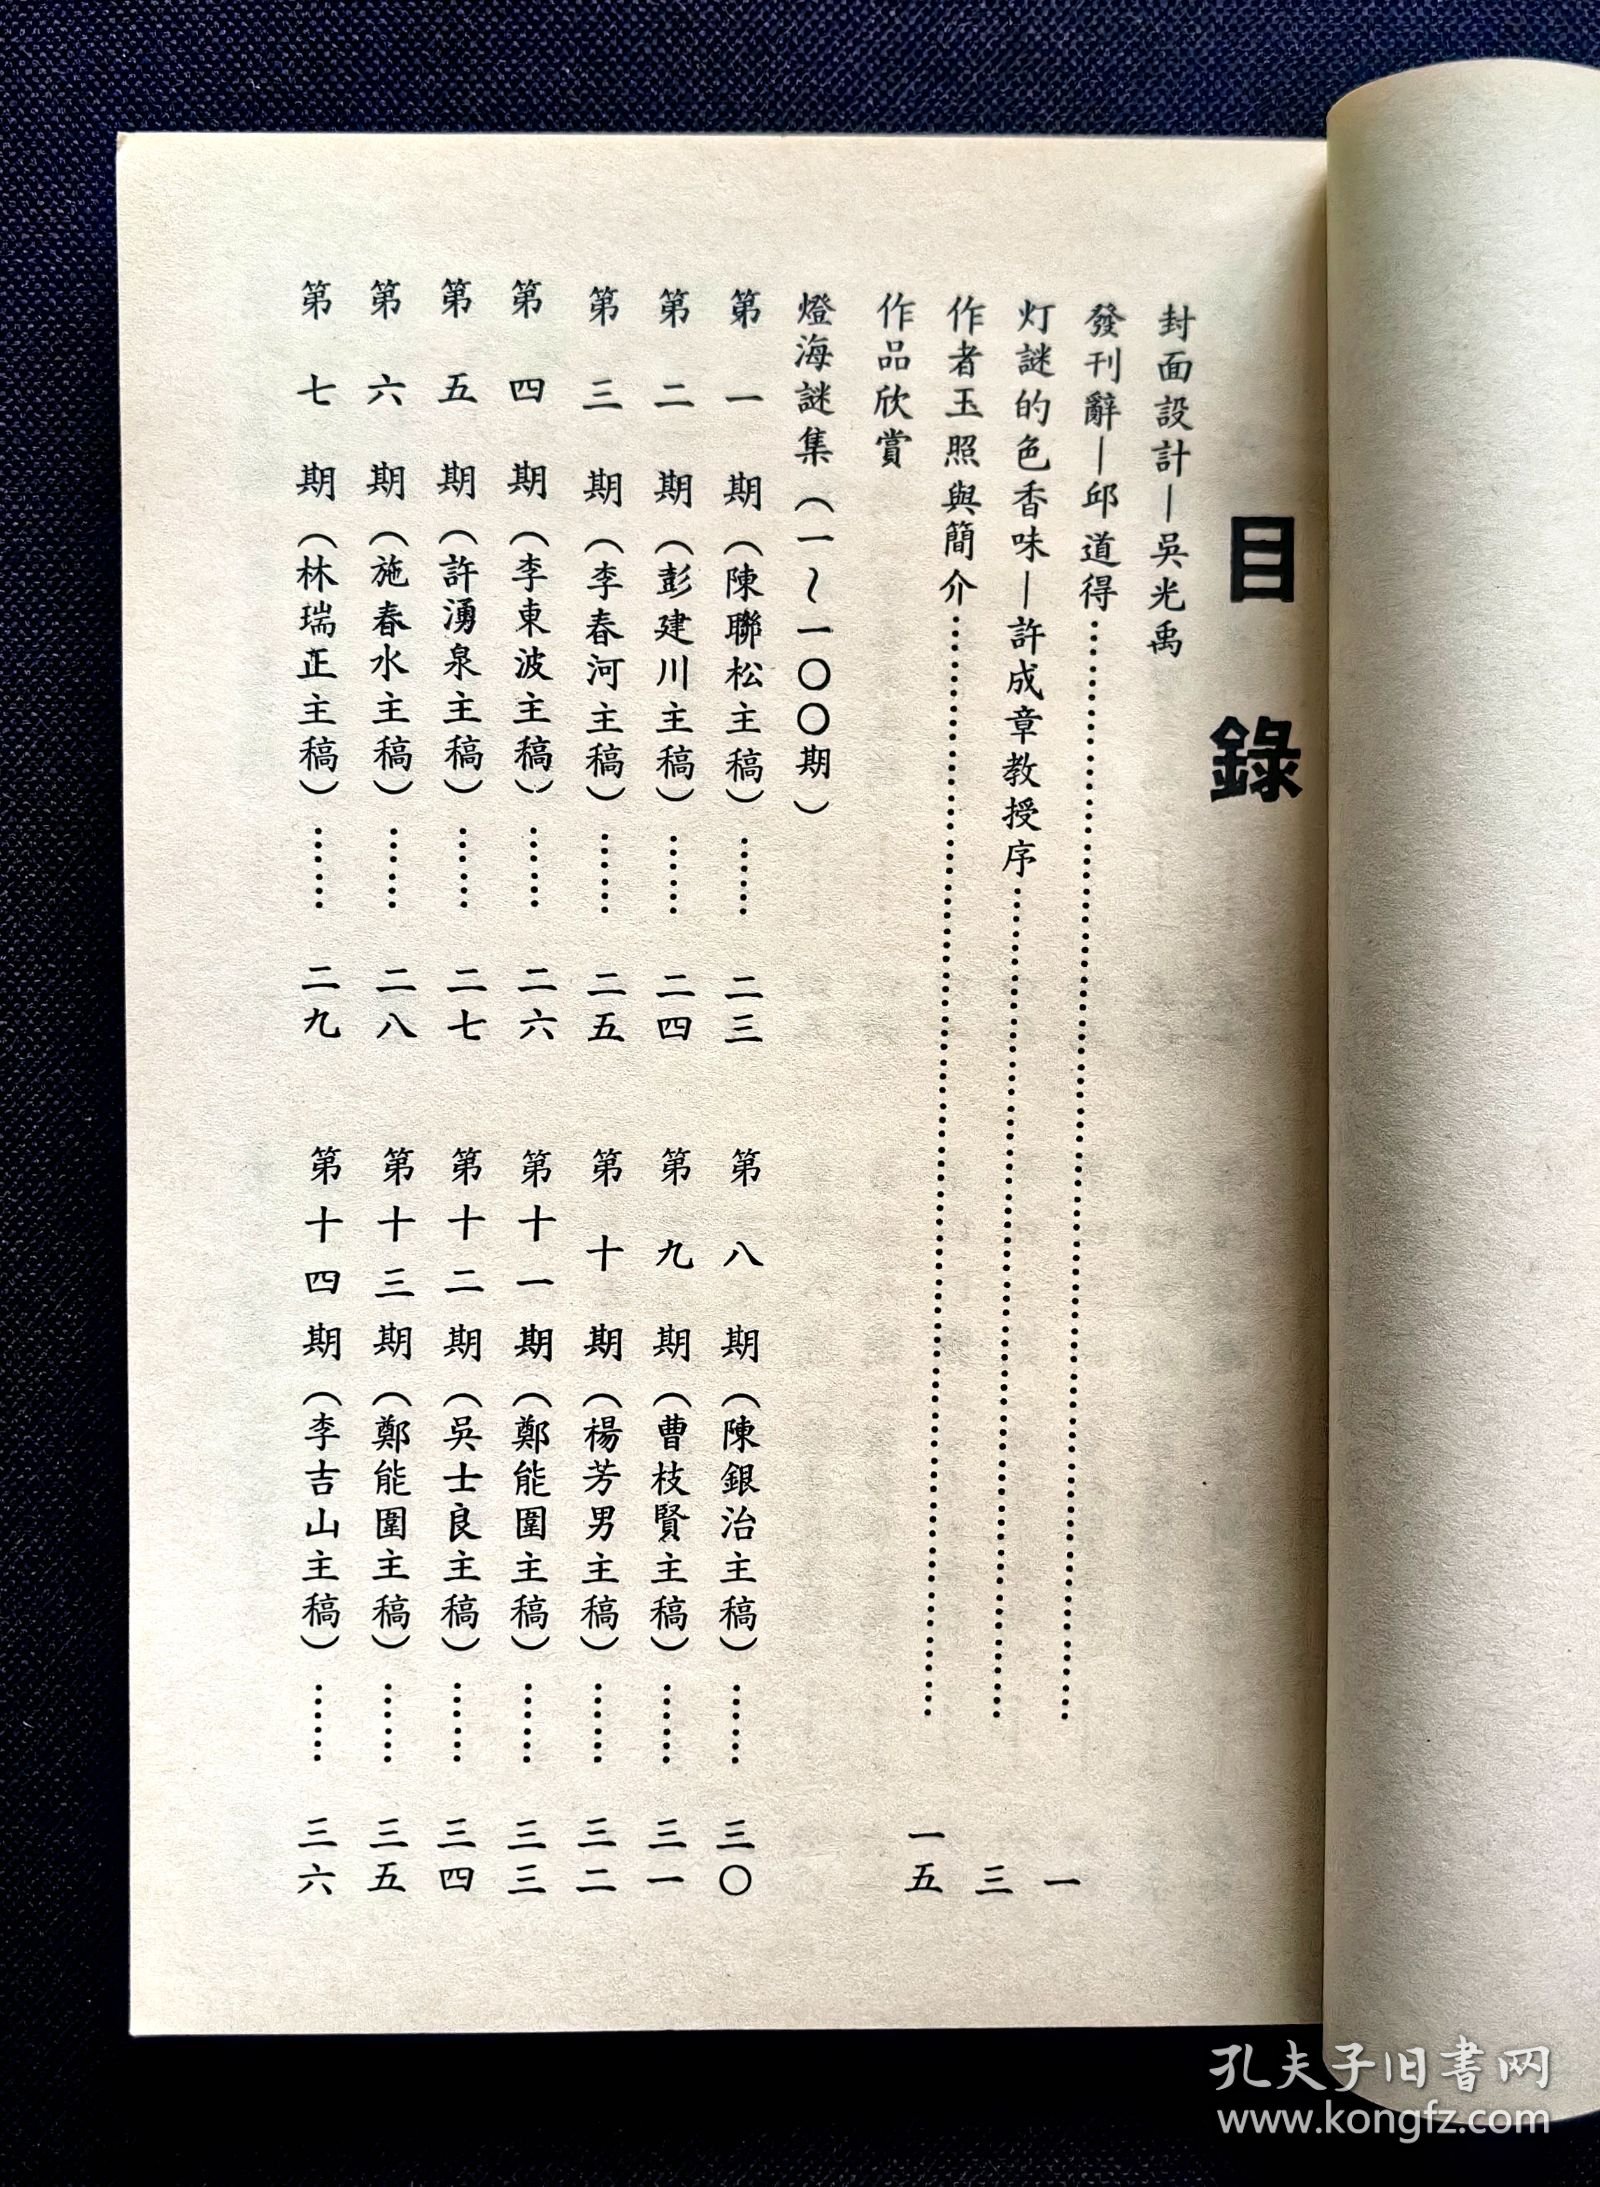 目錄
封面設計—吳光禹
發刊辭—邱道得……一
灯謎的色香味—許成章教授序……三
作者玉照與簡介……一五
作品欣賞
燈海謎集（一～一〇〇期）
第一期（陳聯松主稿）……二三
第二期（彭建川主稿）……二四
第三期（李春河主稿）……二五
第四期（李東波主稿）……二六
第五期（許湧泉主稿）……二七
第六期（施春水主稿）……二八
第七期（林瑞正主稿）……二九
第八期（陳銀治主稿）……三〇
第九期（曹枝賢主稿）……三一
第十期（楊芳男主稿）……三二
第十一期（鄭能圍主稿）……三三
第十二期（吳士良主稿）……三四
第十三期（鄭能圍主稿）……三五
第十四期（李吉山主稿）……三六
孔夫子旧书网
www.kongfz.com